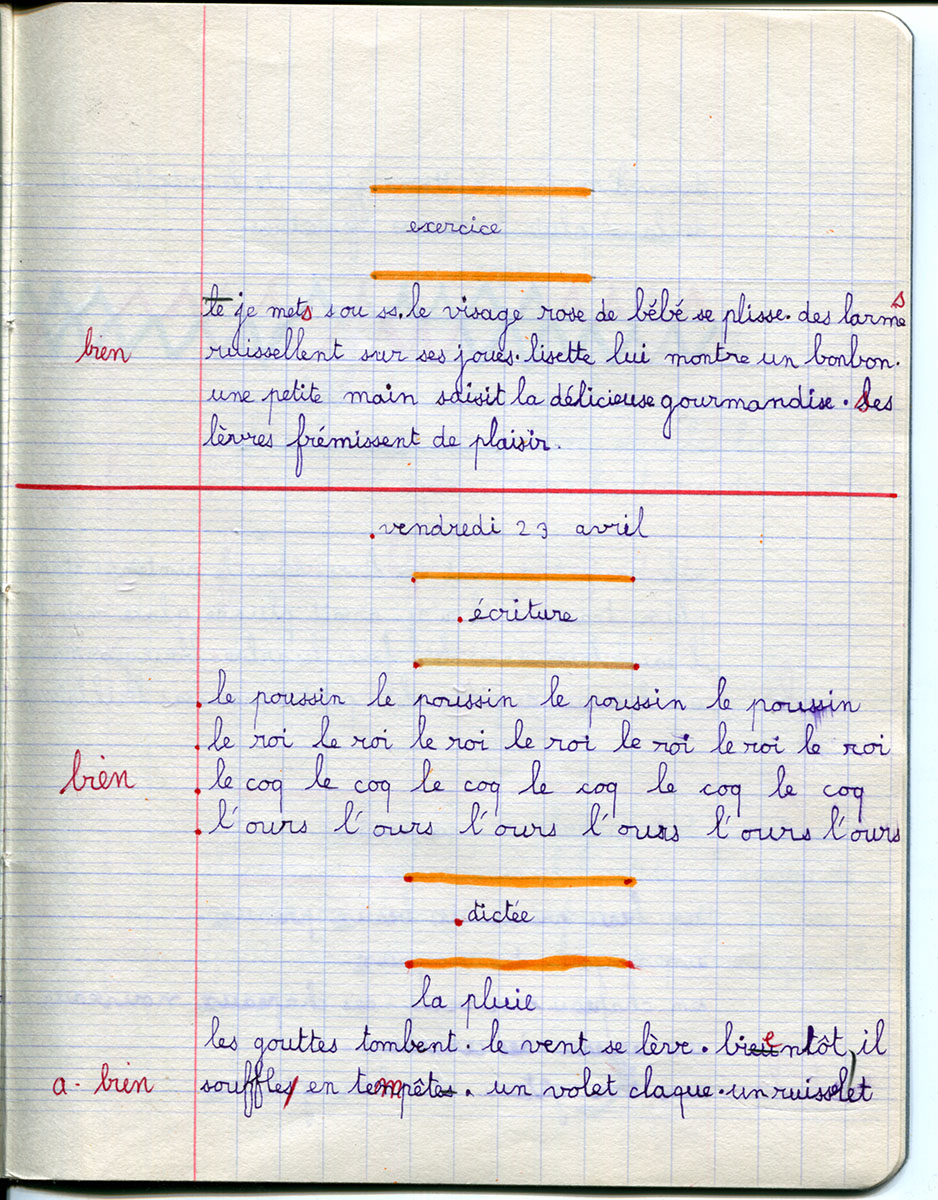 exercice
te je mets s ou ss. le visage rose de bébé se plisse. des larmes
bien
ruissellent sur ses joues. lisette lui montre un bonbon.
une petite main saisit la délicieuse gourmandise. Ses
lèvres frémissent de plaisir.
.vendredi 23 avril
.écriture
.le poussin le poussin le poussin le poussin
.le roi le roi le roi le roi le roi le roi le roi
bien
.le coq le coq le coq le coq le coq le coq
.l'ours l'ours l'ours l'ours l'ours l'ours
.dictée
la pluie
les gouttes tombent. le vent se lève. bientôt, il
a. bien
souffle en tempête. un volet claque. un ruisselet